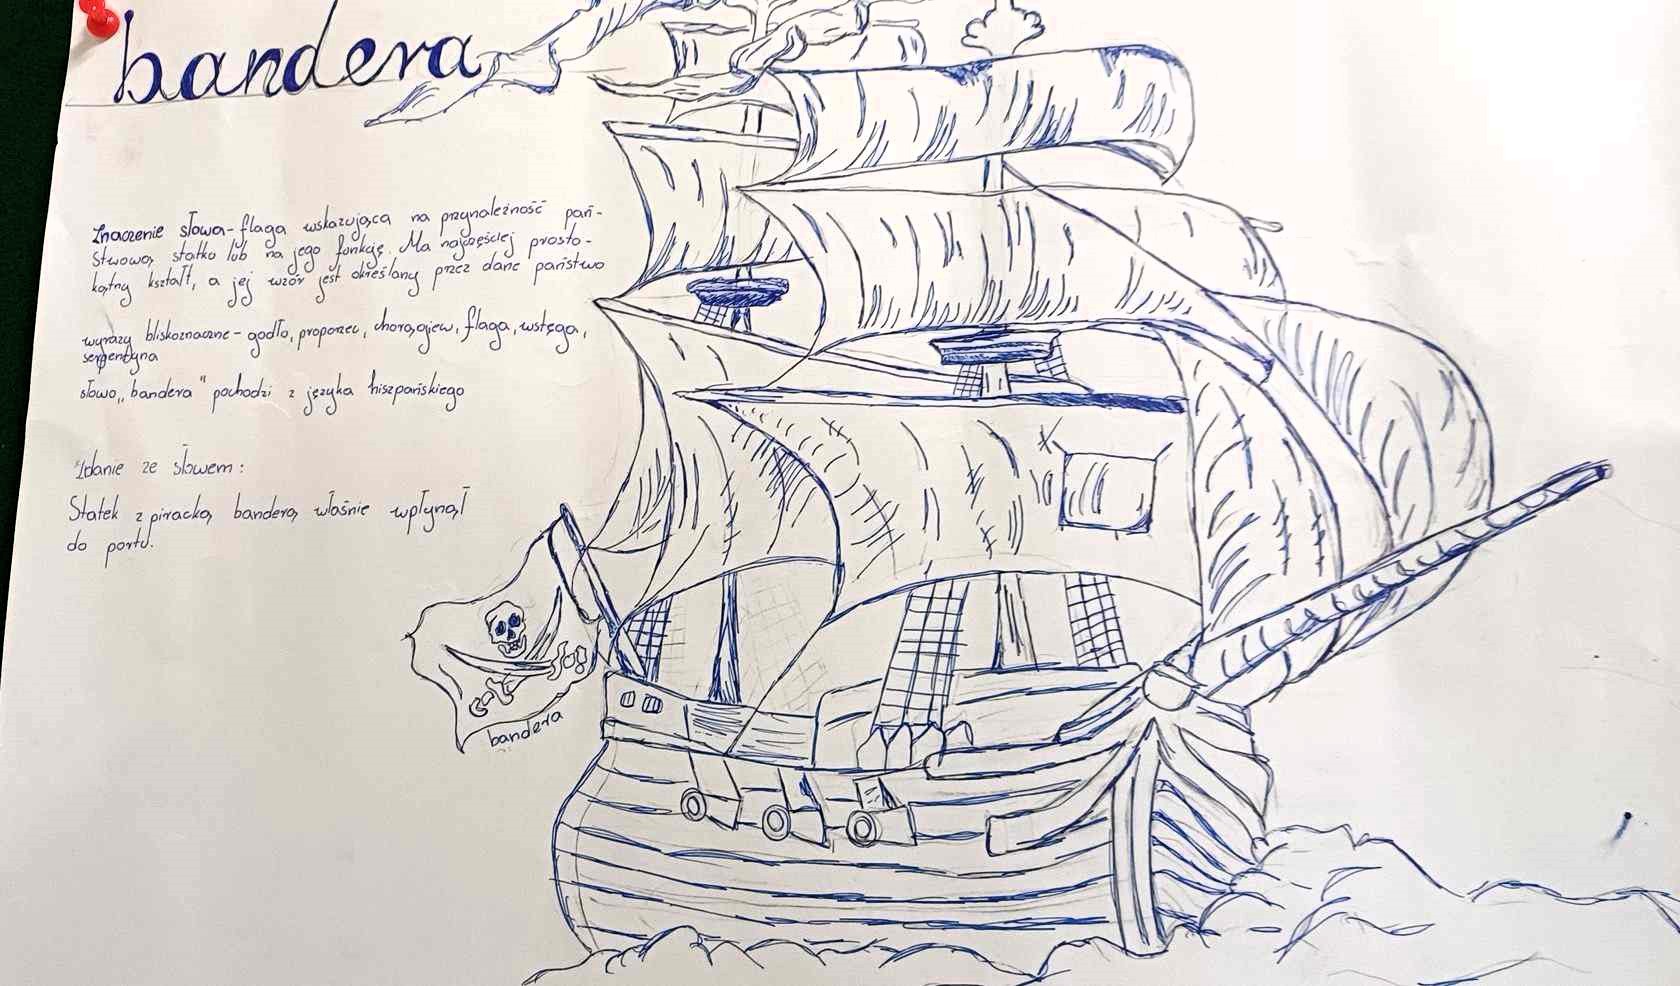 bandera
Znaczenie słowa - flaga wskazująca na przynależność pań-
stwową statku lub na jego funkcję. Ma najczęściej prosto-
kątny kształt, a jej wzór jest określany przez dane państwo
wyrazy bliskoznaczne - godło, proporzec, chorągiew, flaga, wstęga,
serpentyna
słowo „bandera" pochodzi z języka hiszpańskiego
Zdanie ze słowem:
Statek z piracką banderą właśnie wpłynął
do portu.
bandera